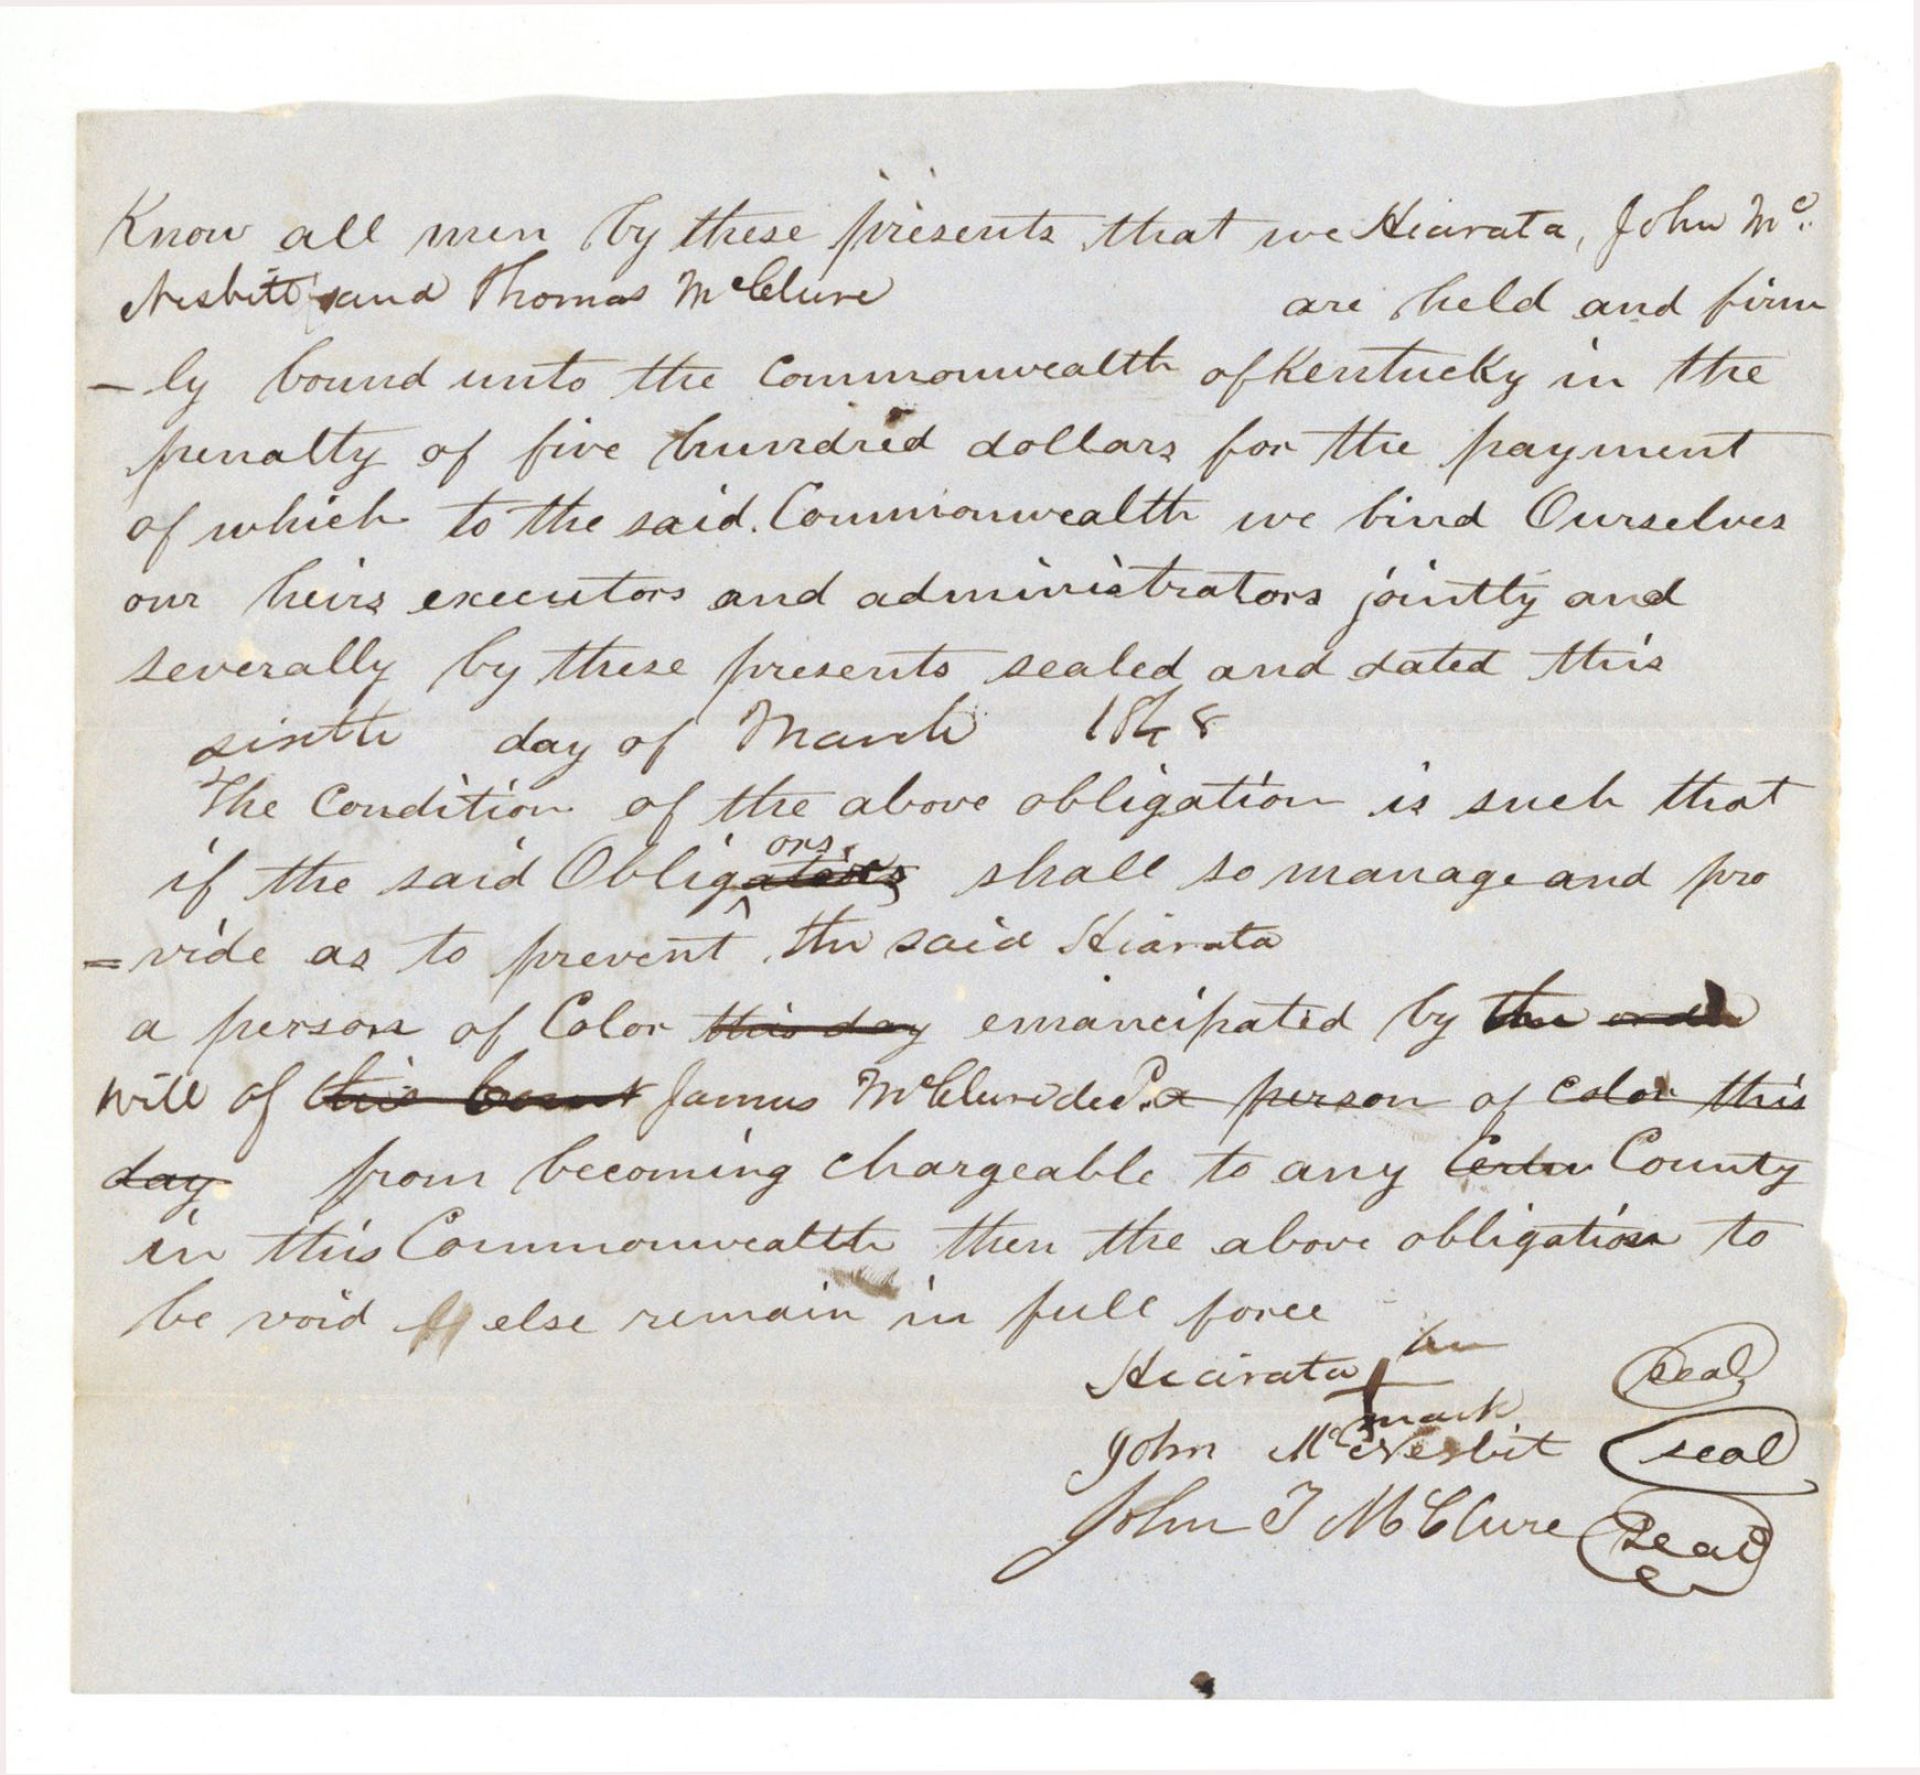 Know all men by these presents that we Hiarata, John Mc.
Nesbitt and Thomas McClure are held and firm
- ly bound unto the Commonwealth of Kentucky in the
penalty of five hundred dollars for the payment
of which to the said. Commonwealth we bind Ourselves
our heirs executors and administrators jointly and
severally by these presents sealed and dated this
sixth day of March 1848
The Condition of the above obligation is such that
ors.
if the said Obligations shall so manage and pro
= vide as to prevent the said Hiarata
a person of Color this day emancipated by the order
will of this Court James McClure decd. a person of color this
day from becoming chargeable to any County
in this Commonwealth then the above obligation to
be void else remain in full force
her
Hiarata + seal
mark
John Mc Nesbit seal
John T McClure seal